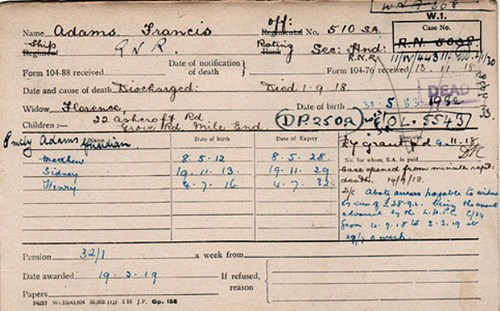 W.I.
Name Adams, Francis Off: Regimental No. 510 SA Case No.
Ship Rating Sec: Hnd: R.N. 5098
Regiment R N R. Rank R.N.R. 11/N/443
Form 104-88 received Date of notification of death Form 104-76 received 13.11.18
Date and cause of death Discharged: Died 1.9.18. DEAD
Widow Florence, Date of birth 30.5.
Children :— 22 Ashcroft Rd DP.2502 OL.5543
Grove Rd. Mile End
Emily Adams Guardian Date of birth Date of Expiry £4 grant pd 9.11.18
Matthew 8.5.12 8.5.28 No. for whom S.A. is paid
Sidney 19.11.13 19.11.29 Case opened from minute rept:
Henry 4.7.16 4.7.32 death. 14/9/18
Abate arrears payable to widow
by sum of £28.9.2. being the amount
advanced by the
from 4.9.18 to 2.3.19 at
a week.
Pension 32/1 a week from
Date awarded 19.3.19 If refused,
reason
Papers
J.P. Gp. 158